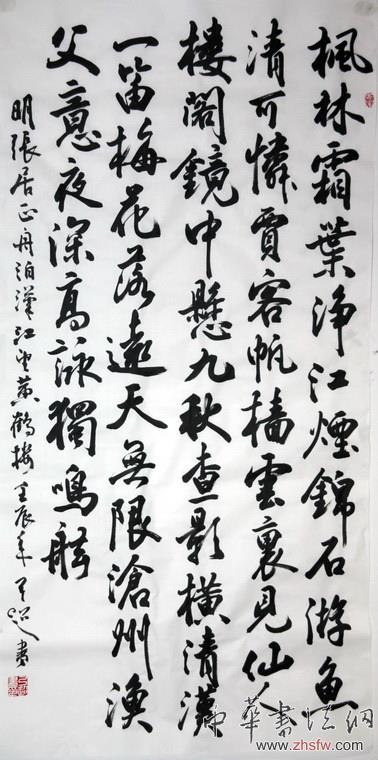 枫林霜葉浄江煙錦石游魚
清可憐賈客帆檣雲裏見仙人
樓閣鏡中懸九秋查影横清漢
一笛梅花落遠天無限滄州漁
父意夜深高詠獨鳴舷
明張居正舟泊漢江望黄鶴樓 壬辰年 書
华書法網
www.zhsfw.com